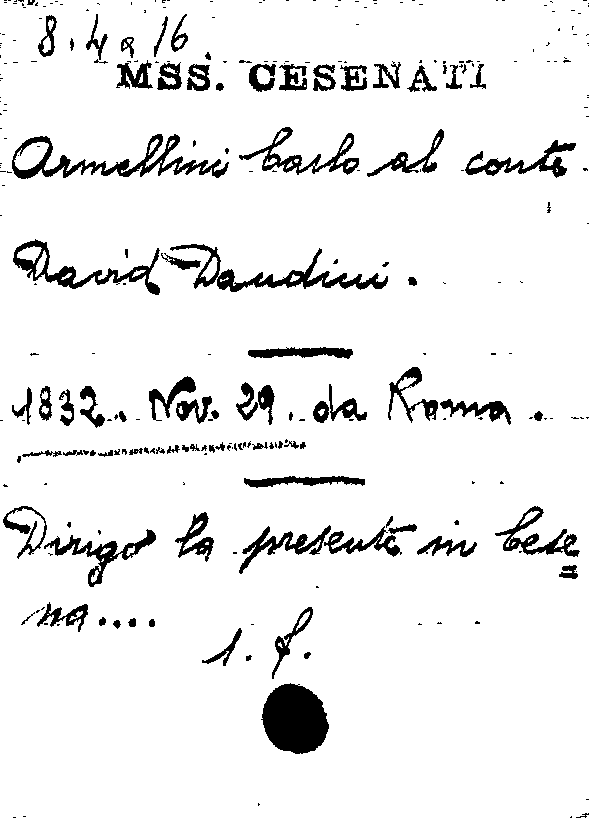 8. 4 a 16.
MSS. CESENATI
Armellini Carlo al conte
David Dandini.
1832. Nov. 29. da Roma.
Dirigo la presente in Cese=
na....
1. f.